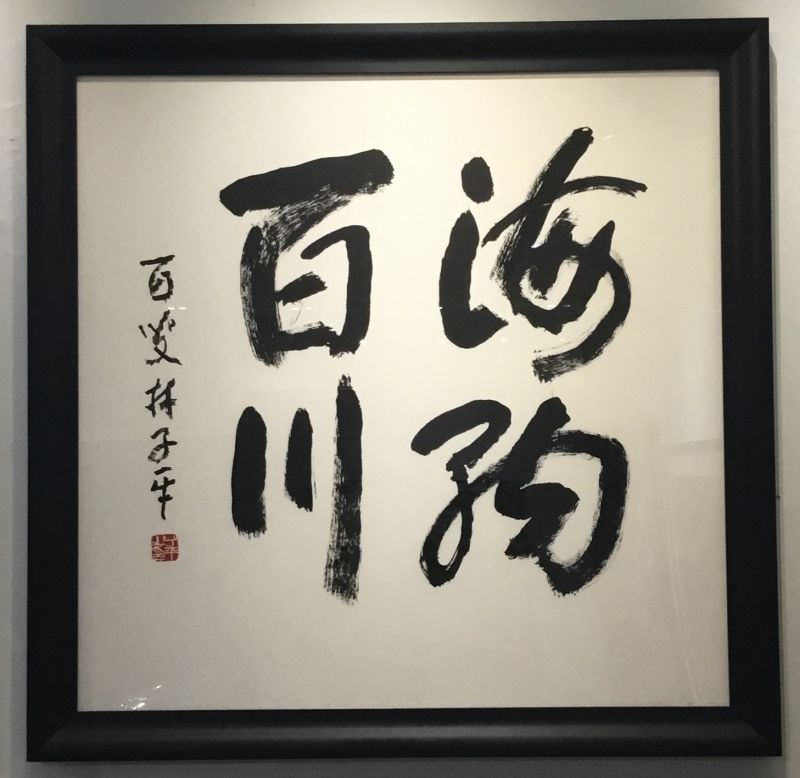 海納
百川
百叟林子平